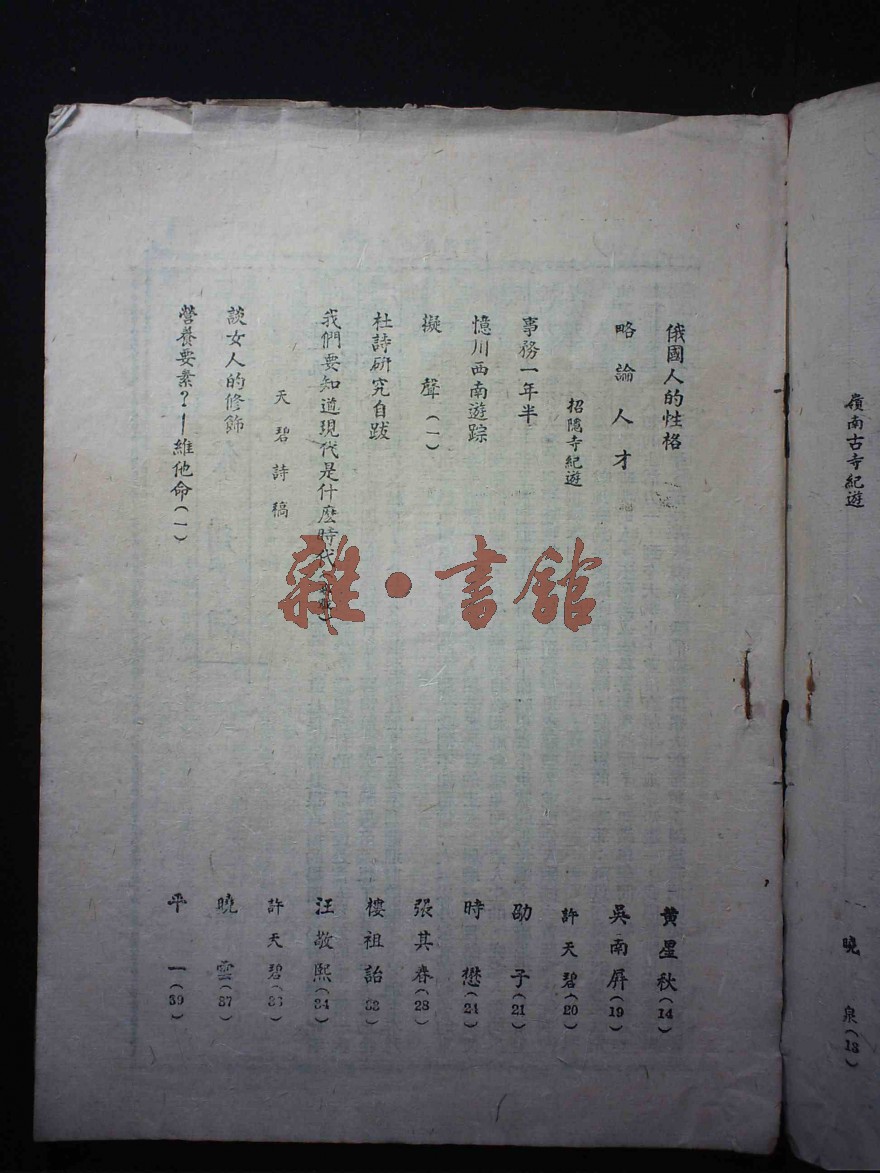 嶺南古寺紀遊 曉 泉(13)
俄國人的性格 黃星秋(14)
略論人才 吳南屏(19)
招隱寺紀遊 許天碧(20)
事務一年半 劭 子(21)
憶川西南遊踪 時 懋(24)
擬聲(一) 張其春(28)
杜詩研究自跋 樓祖詒
我們要知道現代是什麽時代 汪敬熙(34)
天碧詩稿 許天碧
談女人的修飾 曉 雲(37)
營養要素?—維他命(一) 平 一(39)
雜·書舘